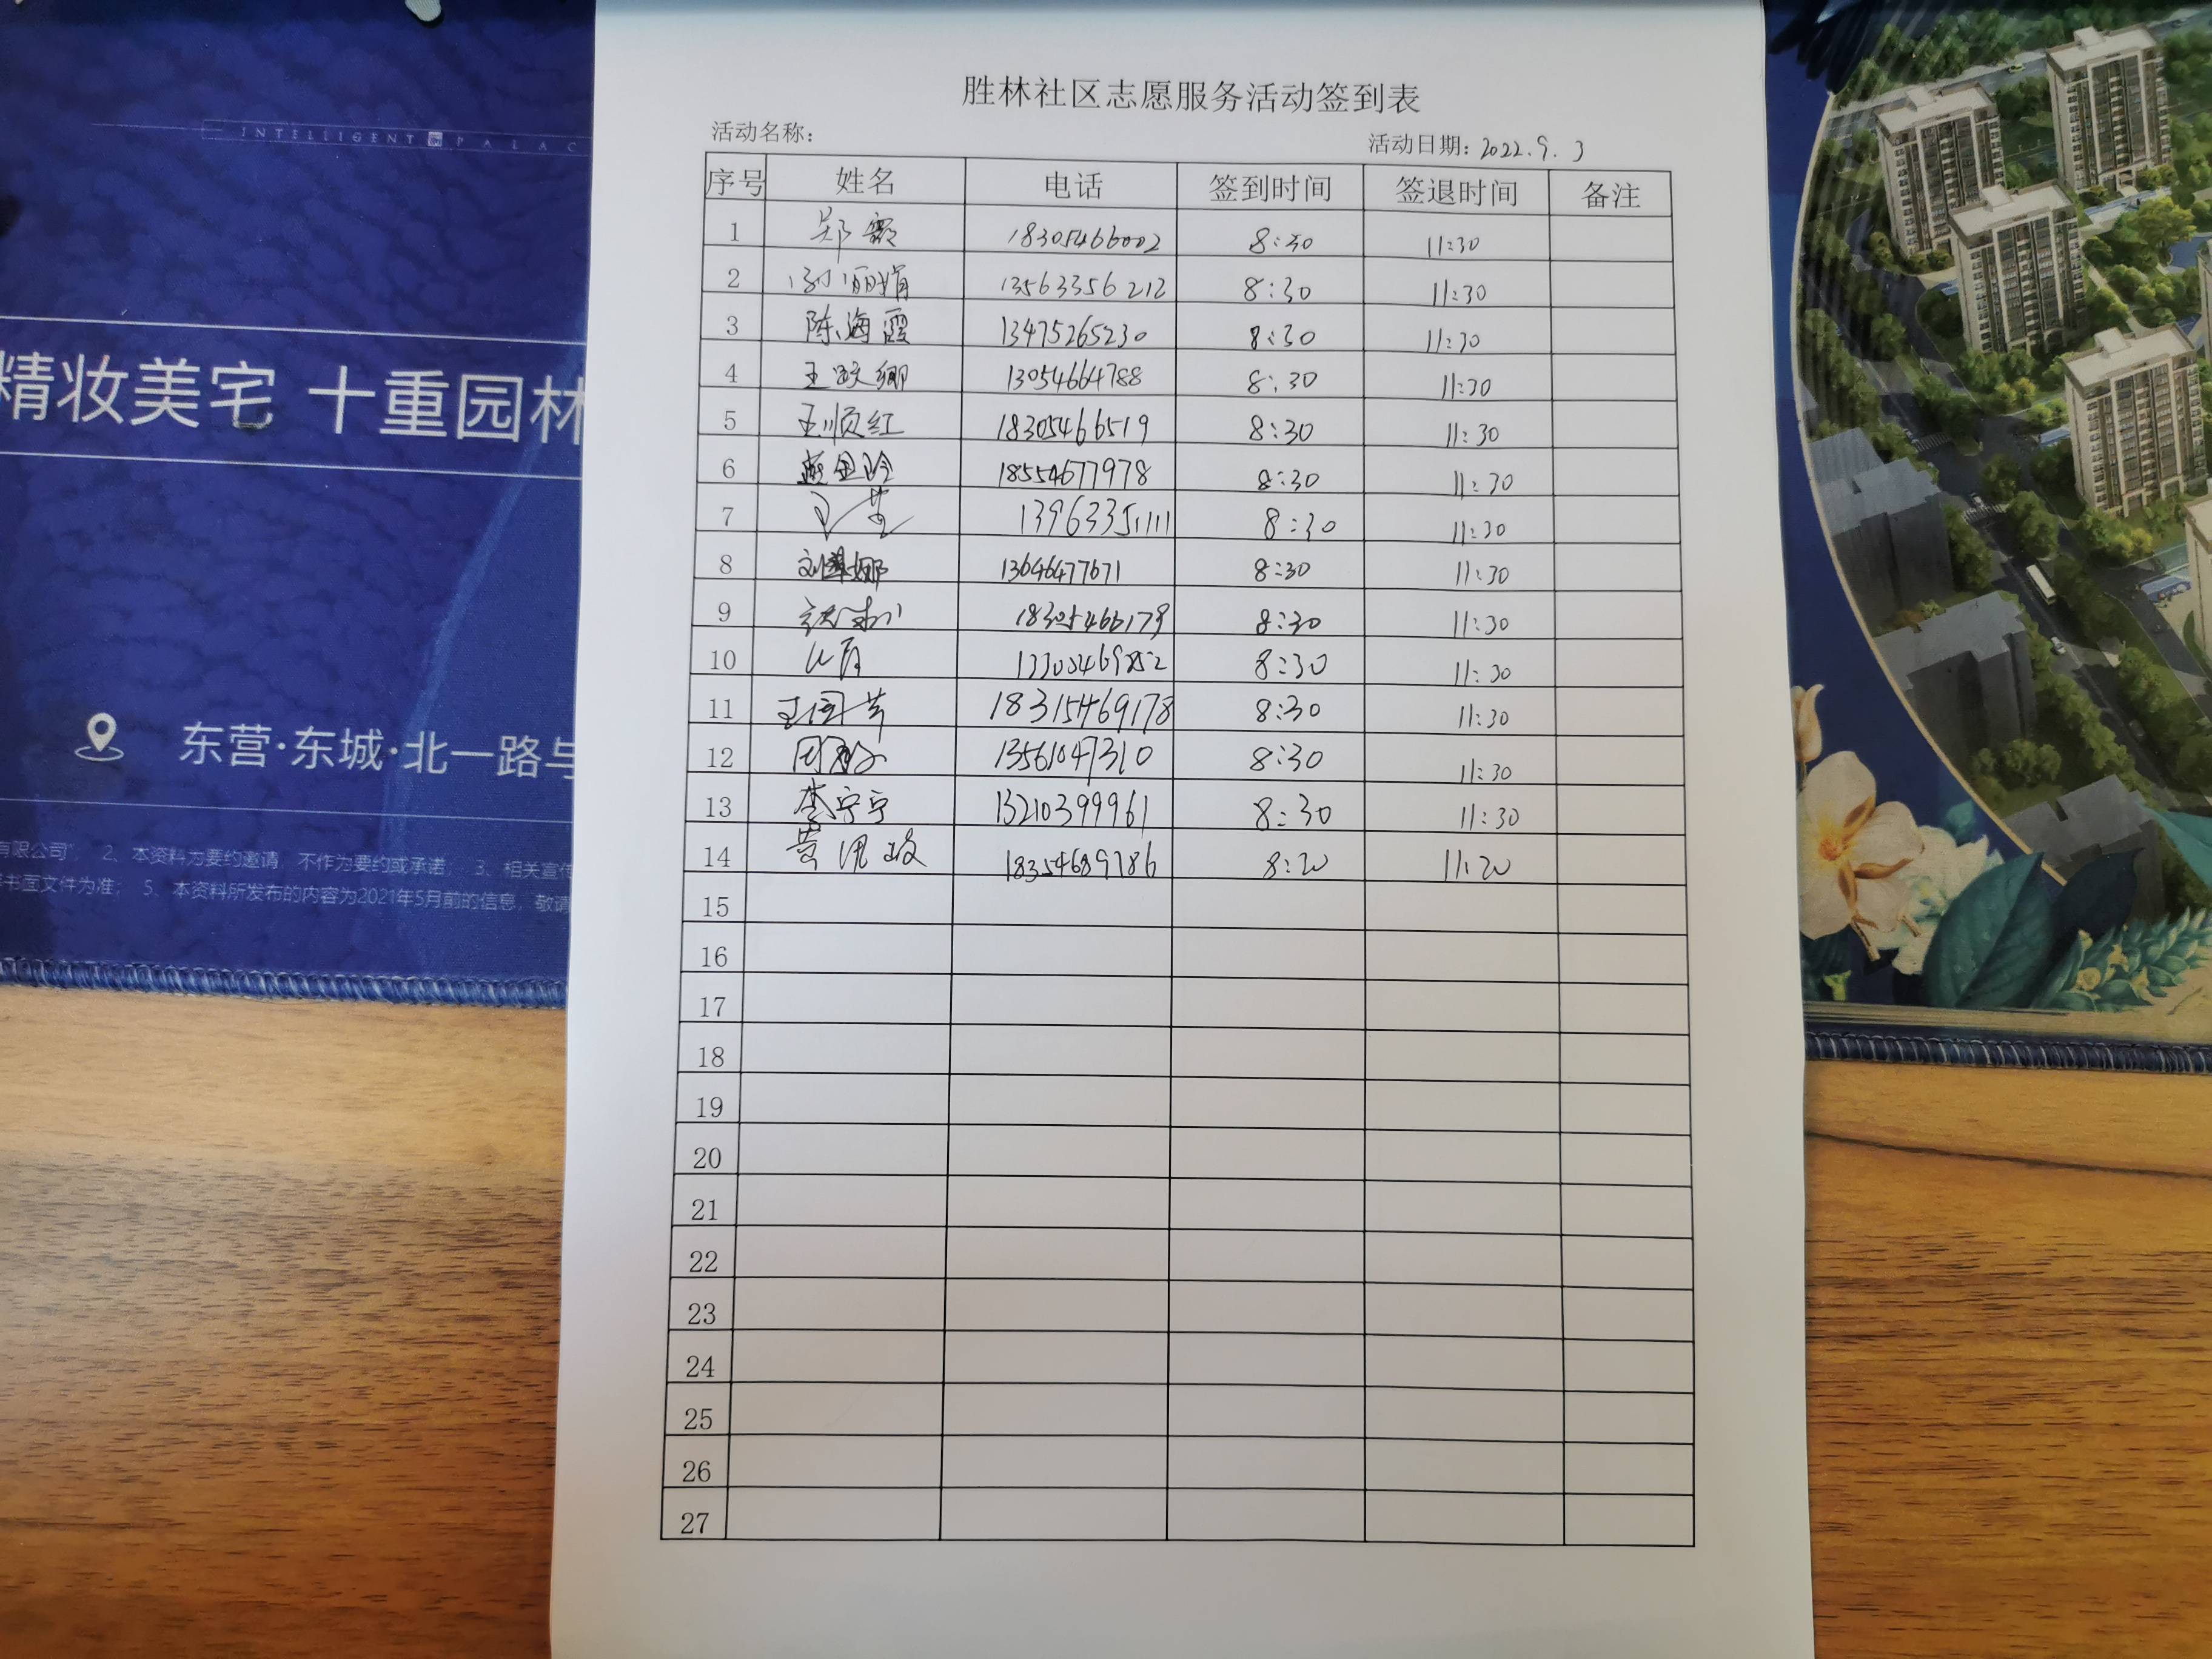 胜林社区志愿服务活动签到表
活动名称：
活动日期：2022.9.3
序号 姓名 电话 签到时间 签退时间 备注
1 郑霞 18305466002 8:30 11:30
2 丽娟 13563356212 8:30 11:30
3 陈海霞 13475265230 8:30 11:30
4 王 13054664788 8:30 11:30
5 王顺红 18305466519 8:30 11:30
6 燕金玲 18554677978 8:30 11:30
7 13963351111 8:30 11:30
8 刘 娜 13646477671 8:30 11:30
9 18305466179 8:30 11:30
10 8:30 11:30
11 王国芳 18315469178 8:30 11:30
12 周 13561047310 8:30 11:30
13 李宁宁 13210399961 8:30 11:30
14 黄 18354689786 8:20 11:20
15
16
17
18
19
20
21
22
23
24
25
26
27
INTELLIGENT PALAC
精妆美宅 十重园林
东营·东城·北一路与
有限公司"； 2、本资料为要约邀请，不作为要约或承诺； 3、相关宣传
书面文件为准； 5、本资料所发布的内容为2021年5月前的信息，敬请